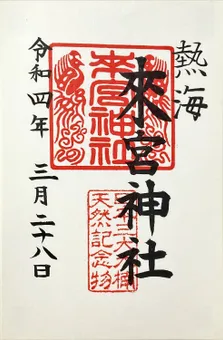 熱海
來宮神社
來宮神社
天然記念物
令和四年
三月二十八日